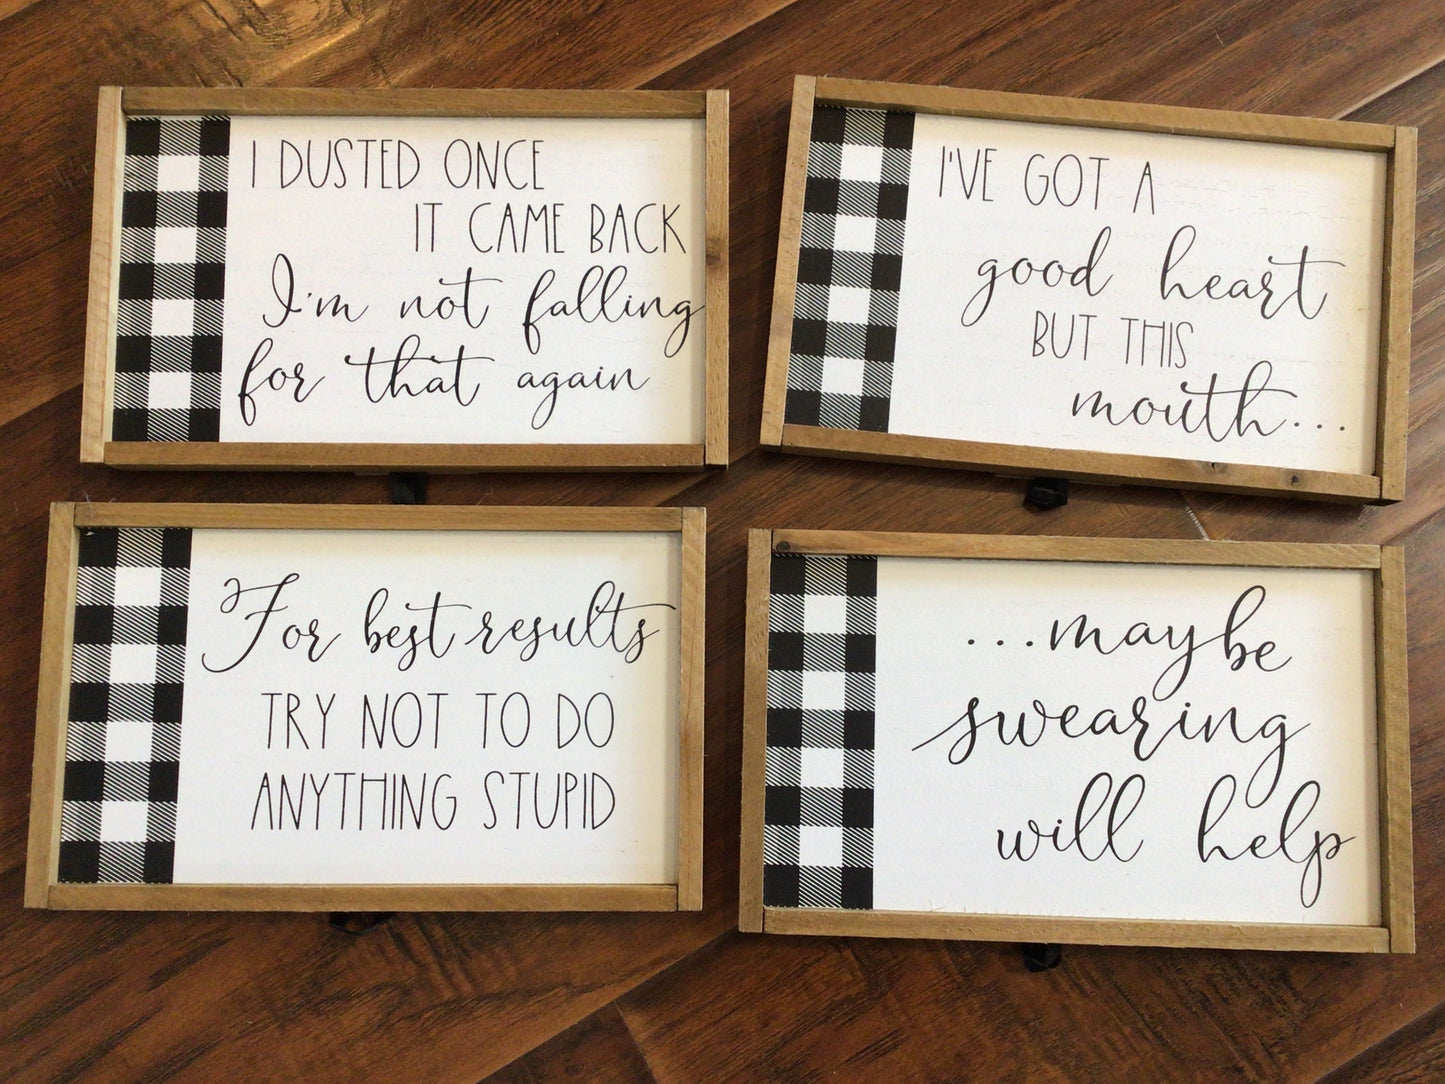 I DUSTED ONCE
IT CAME BACK
I'm not falling
for that again
I'VE GOT A
good heart
BUT THIS
mouth...
For best results
TRY NOT TO DO
ANYTHING STUPID
...maybe
swearing
will help